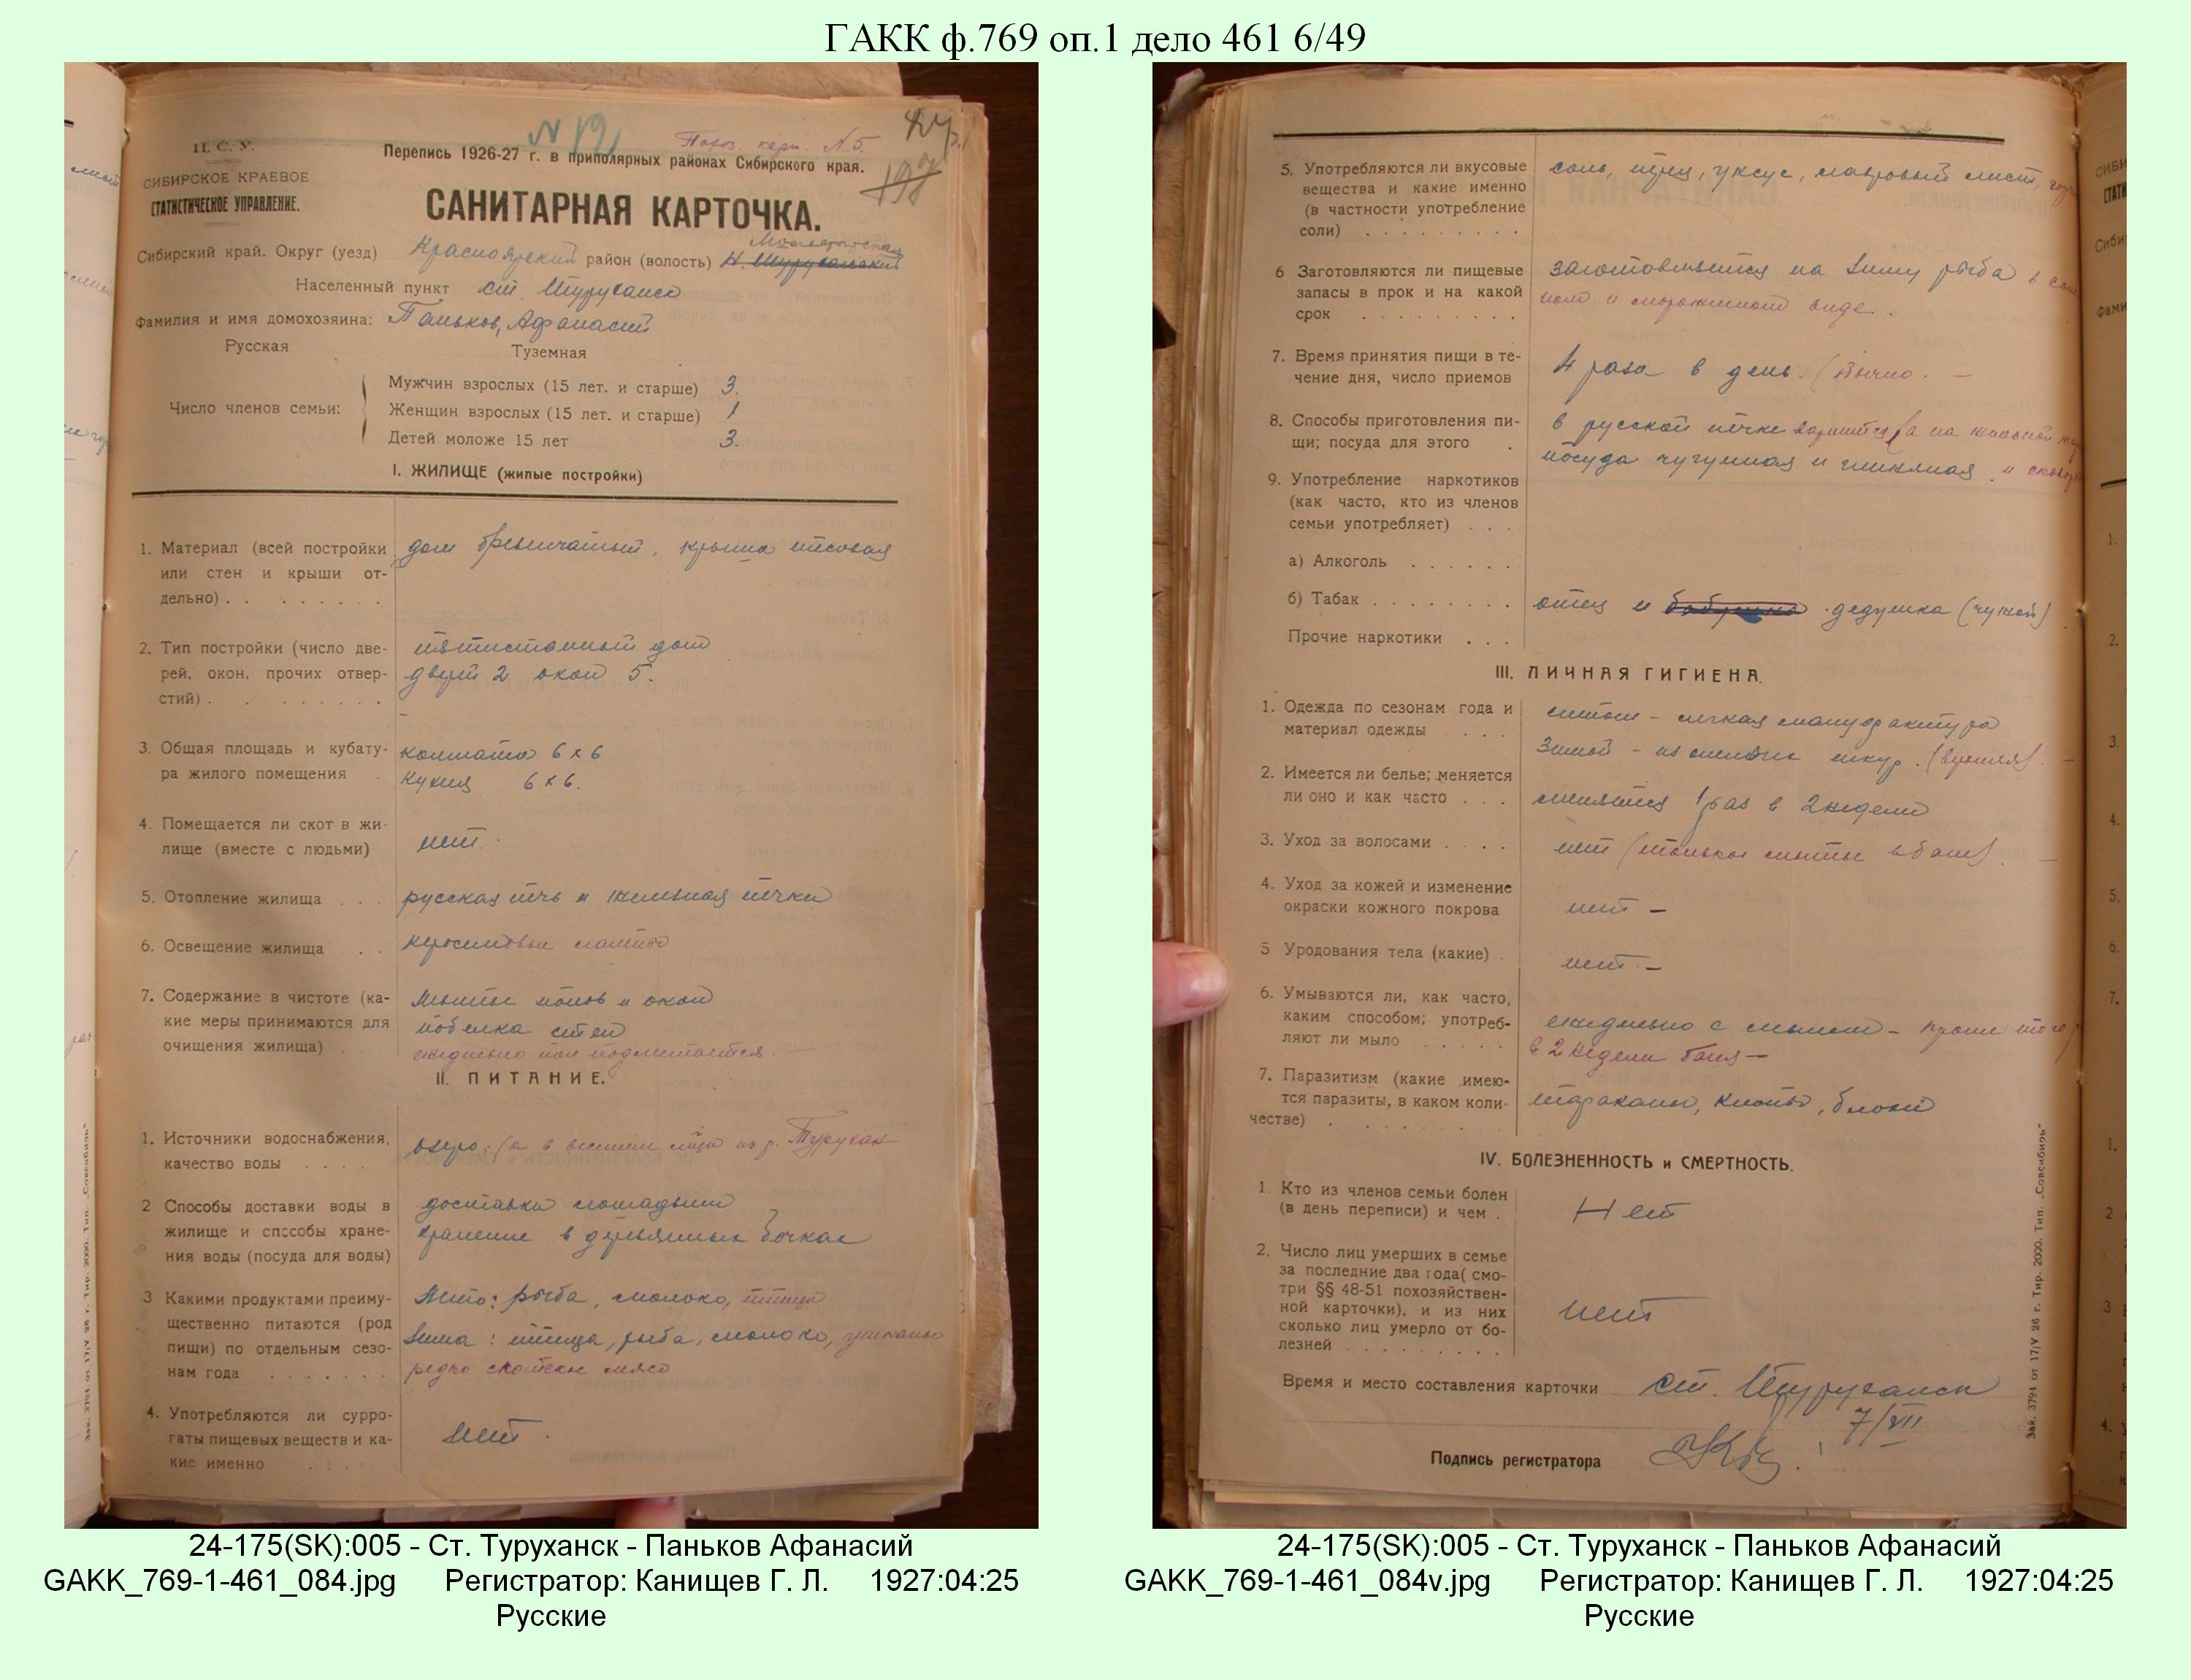 ГАКК ф.769 оп.1 дело 461 6/49
N 12
Ц. С. У.
Перепись 1926-27 г. в приполярных районах Сибирского края.
СИБИРСКОЕ КРАЕВОЕ
СТАТИСТИЧЕСКОЕ УПРАВЛЕНИЕ.
САНИТАРНАЯ КАРТОЧКА.
Сибирский край. Округ (уезд) Красноярский район (волость)
Населенный пункт ст. Туруханск
Фамилия и имя домохозяина: Паньков, Афанасий
Русская Туземная
Число членов семьи:
Мужчин взрослых (15 лет. и старше) 3.
Женщин взрослых (15 лет. и старше) 1
Детей моложе 15 лет 3.
I. ЖИЛИЩЕ (жилые постройки)
1. Материал (всей постройки дом бревенчатый, крыша тесовая
или стен и крыши от-
дельно) . . . . . . . .
2. Тип постройки (число две- пятистанный дом
рей, окон, прочих отвер- двери 2 окон 5.
стий) . . . . . . . . .
3. Общая площадь и кубату- комната 6 х 6
ра жилого помещения . кухня 6 х 6.
4. Помещается ли скот в жи- нет.
лище (вместе с людьми)
5. Отопление жилища . . . русская печь и железная печка
6. Освещение жилища . . керосиновые лампы
7. Содержание в чистоте (ка- Мытье полов и окон
кие меры принимаются для побелка стен
очищения жилища) . . ежедневно пол подметается. —
II. ПИТАНИЕ.
1. Источники водоснабжения, озеро: (а в из р. Турухан
качество воды . . . .
2 Способы доставки воды в доставка лошадьми
жилище и способы хране- хранение в деревянных бочках
ния воды (посуда для воды)
3 Какими продуктами преиму- Лето: рыба, молоко, птица
щественно питаются (род Зима: птица, рыба, молоко,
пищи) по отдельным сезо- редко скотское мясо
нам года . . . . . . .
4. Употребляются ли сурро- нет.
гаты пищевых веществ и ка-
кие именно . . . .
Зак. 3794 от 17/V 26 г. Тир. 2000. Тип. „Совсибирь"
24-175(SK):005 - Ст. Туруханск - Паньков Афанасий
GAKK_769-1-461_084.jpg Регистратор: Канищев Г. Л. 1927:04:25
Русские
5. Употребляются ли вкусовые соль, перец, уксус, лавровый лист,
вещества и какие именно
(в частности употребление
соли) . . . . . . . . .
6 Заготовляются ли пищевые заготовляется на зиму рыба в
запасы в прок и на какой и мороженном виде.
срок . . . . . . . . .
7. Время принятия пищи в те- 4 раза в день.
чение дня, число приемов
8. Способы приготовления пи- в русской печке
щи; посуда для этого . посуда чугунная и глиняная и
9. Употребление наркотиков
(как часто, кто из членов
семьи употребляет) . . .
а) Алкоголь . . . . . .
б) Табак . . . . . . . . отец и дедушка
Прочие наркотики . . .
III. ЛИЧНАЯ ГИГИЕНА.
1. Одежда по сезонам года и летом - легкая мануфактура
материал одежды . . . Зимой - из оленьих шкур.
2. Имеется ли белье; меняется меняется 1 раз в 2 недели
ли оно и как часто . . .
3. Уход за волосами . . . . нет (только мытье в бане). —
4. Уход за кожей и изменение нет —
окраски кожного покрова
5 Уродования тела (какие) . нет —
6. Умываются ли, как часто, ежедневно с мылом - кроме того
каким способом; употреб- в 2 недели баня —
ляют ли мыло . . . . .
7. Паразитизм (какие имею- тараканы, клопы, блохи
тся паразиты, в каком коли-
честве) . . . . . . . . .
IV. БОЛЕЗНЕННОСТЬ и СМЕРТНОСТЬ.
1. Кто из членов семьи болен Нет
(в день переписи) и чем .
2. Число лиц умерших в семье нет
за последние два года( смо-
три §§ 48-51 похозяйствен-
ной карточки), и из них
сколько лиц умерло от бо-
лезней . . . . . . . . .
Время и место составления карточки ст. Туруханск
7/VII
Подпись регистратора
Зак. 3794 от 17/V 26 г. Тир. 2000. Тип. „Совсибирь"
24-175(SK):005 - Ст. Туруханск - Паньков Афанасий
GAKK_769-1-461_084v.jpg Регистратор: Канищев Г. Л. 1927:04:25
Русские